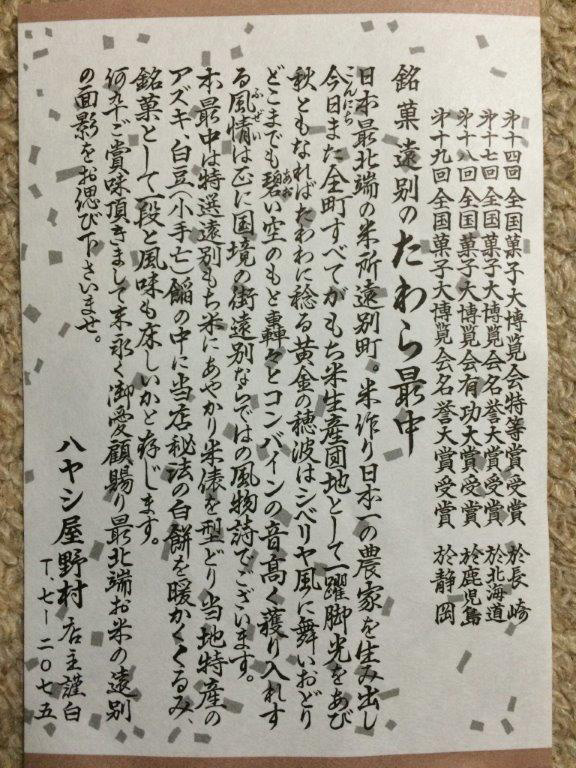 第十四回 全国菓子大博覧会特等賞受賞 於長崎
第十七回 全国菓子大博覧会名誉大賞受賞 於北海道
第十八回 全国菓子大博覧会有功大賞受賞 於鹿児島
第十九回 全国菓子大博覧会名誉大賞受賞 於静岡
銘菓遠別のたわら最中
日本最北端の米所遠別町。米作り日本一の農家を生み出し
今日また全町すべてがもち米生産団地として一躍脚光をあび
秋ともなればたわわに稔る黄金の穂波はシベリヤ風に舞いおどり
どこまでも碧い空のもと轟々とコンバインの音高く穫り入れす
る風情は正に国境の街遠別ならではの風物詩でございます。
本最中は特選遠別もち米にあやかり米俵を型どり当地特産の
アズキ、白豆(小手亡)餡の中に当店秘法の白餅を暖かくくるみ、
銘菓として一段と風味も床しいかと存じます。
何卒ご賞味頂きまして末永く御愛顧賜り最北端お米の遠別
の面影をお偲び下さいませ。
ハヤシ屋野村 店主謹白
T、七ー二〇七五